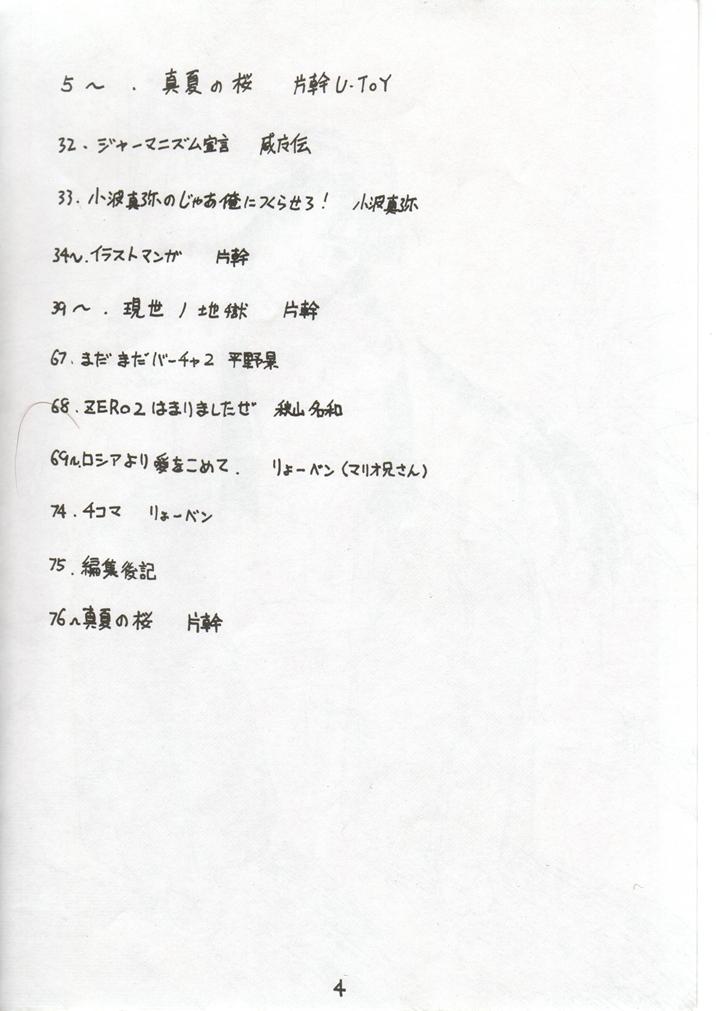 5〜．真夏の桜　片幹 U-ToY
32．ジャーマニズム宣言
33．小波真弥のじゃあ俺につくらせろ！　小波真弥
34〜．イラストマンガ　片幹
39〜．現世ノ地獄　片幹
67．まだまだバーチャ2　平野果
68．ZERO2はまりましたぜ　秋山名和
69〜．ロシアより愛をこめて．　りょーベン（マリオ兄さん）
74．4コマ　りょーベン
75．編集後記
76〜真夏の桜　片幹
4